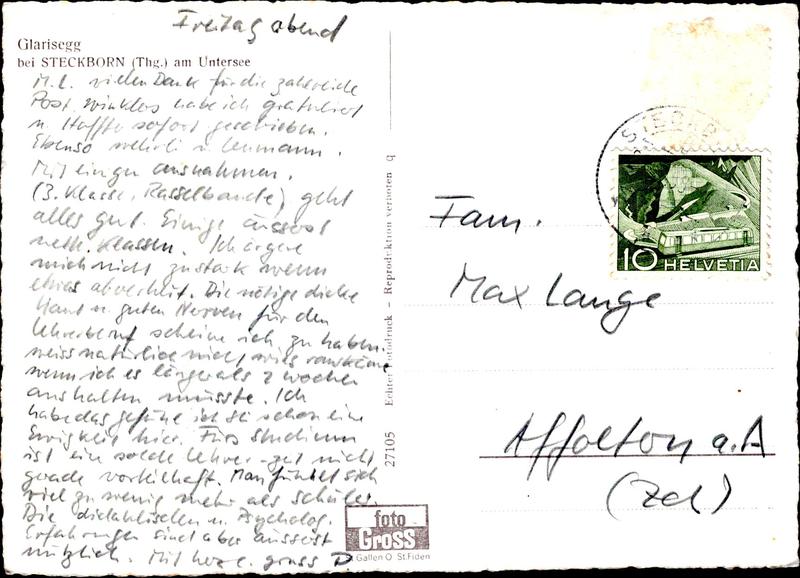 Freitag abend
Glarisegg
bei STECKBORN (Thg.) am Untersee
M. L. vielen Dank für die zahlreiche
Post. Winklers habe ich gratuliert
u. sofort geschrieben.
Ebenso Wehrli u. Lenmann.
Mit einigen ausnahmen.
(3. Klasse, Rasselbande) geht
alles gut. Einige äusserst
nette Klassen. Ich ärgere
mich nicht zu stark wenn
etwas abverheit. Die nötige dicke
Haut u. guten Nerven für den
Lehrberuf scheine ich zu haben.
weiss natürlich nicht, wies rauskäme
wenn ich es länger als 2 wochen
aushalten müsste. Ich
habe das gefühl ich sei schon eine
Ewigkeit hier. Fürs Studium
ist eine solche Lehrer-zeit nicht
grade vorteilhaft. Man fühlt sich
viel zu wenig mehr als schüler.
Die didaktischen u. Psycholog.
Erfahrungen sind aber äusserst
nützlich. Mit herzl. gruss P.
Echter Fotodruck – Reproduktion verboten q
27105
foto
Gross
St. Gallen O St. Fiden
STECKB
10 HELVETIA
Fam.
Max Lange
Affoltern a. A
(Zch)